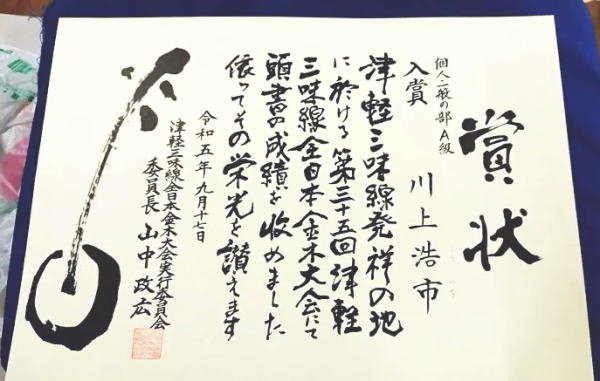 賞状
個人一般の部A級
入賞
川上浩市
津軽三味線発祥の地
に於ける第三十五回津軽
三味線全日本金木大会にて
頭書の成績を収めました
依ってその栄光を讃えます
令和五年九月十七日
津軽三味線全日本金木大会実行委員会
委員長 山中政広